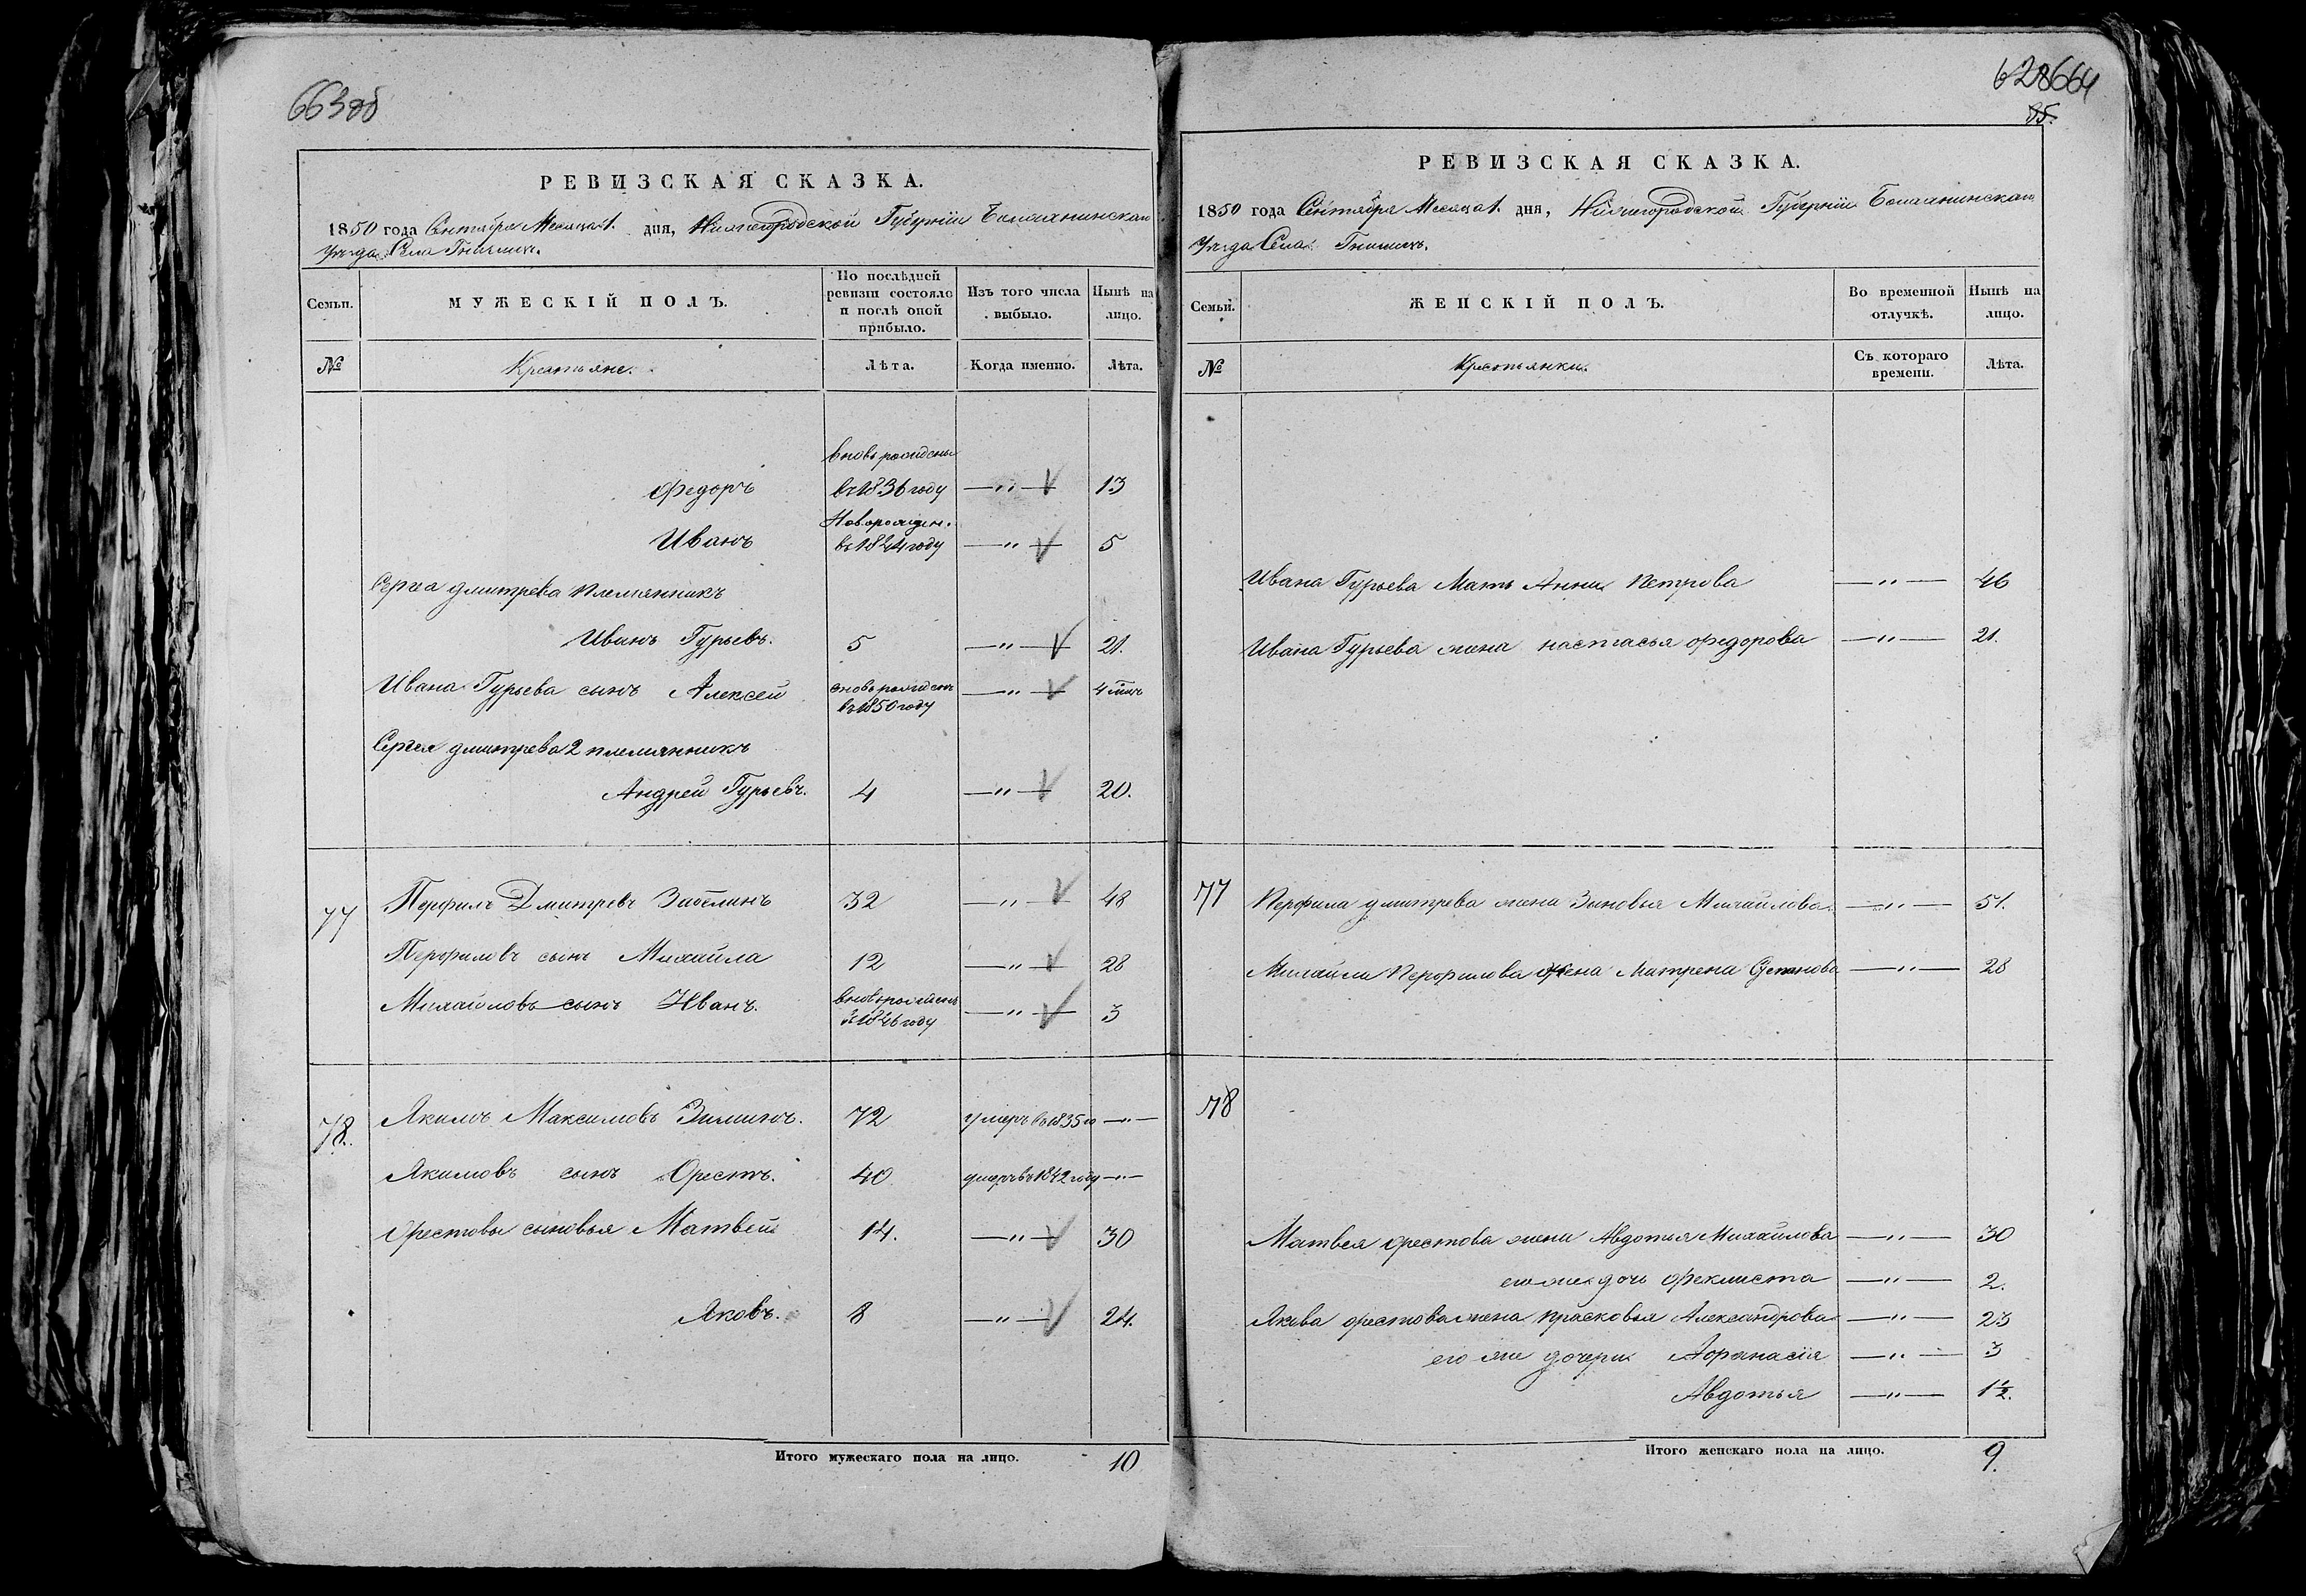 663об
РЕВИЗСКАЯ СКАЗКА.
1850 года Сентября Месяца 1. дня, Нижегородской Губернiи
Уезда Села
Семьи.
МУЖЕСКIЙ ПОЛЪ.
По послѣдней ревизiи состояло и послѣ оной прибыло.
Изъ того числа выбыло.
Нынѣ на лицо.
№
Крестьяне.
Лѣта.
Когда именно.
Лѣта.
вновь рожденъ
Федоръ въ 1836 году —"— 13
Новорожден.
Иванъ въ 1844 году —"— 5
Сергея дмитрева племянникъ
Иванъ Гурьевъ. 5 —"— 21.
Ивана Гурьева сынъ Алексей вновь рожденъ въ 1850 году —"— 4
Сергея дмитрева 2 племянникъ
Андрей Гурьевъ. 4 —"— 20.
77 Перфилъ Дмитревъ 32 —"— 48
Перфиловъ сынъ Михайла 12 —"— 28
Михайловъ сынъ Иванъ. вновь рожденъ въ 1846 году —"— 3
78. Якимъ Максимовъ Зиминъ. 72 умеръ въ 1835 —"—
Якимовъ сынъ Орестъ. 40 умеръ въ 1842 году —"—
Орестовы сыновья Матвей 14. —"— 30
Яковъ. 8 —"— 24.
Итого мужескаго пола на лицо. 10
628 664
85.
РЕВИЗСКАЯ СКАЗКА.
1850 года Сентября Месяца 1. дня, Нижегородской Губернiи
Уезда Села
Семьи.
ЖЕНСКIЙ ПОЛЪ.
Во временной отлучкѣ.
Нынѣ на лицо.
№
Крестьянки.
Съ котораго времени.
Лѣта.
Ивана Гурьева Мать Анна Петрова —"— 46
Ивана Гурьева жена настасья федорова —"— 21.
77 Перфила дмитрева жена Зиновья Михайлова —"— 51.
Михайлы Перфилова жена Матрена Степанова —"— 28
78
Матвея орестова жена Авдотья Михайлова —"— 30
его же дочь феклиста —"— 2.
Якова орестова жена Прасковья Александрова —"— 23
его же дочери Афанасiя —"— 3
Авдотья —"— 1½.
Итого женскаго пола на лицо. 9.